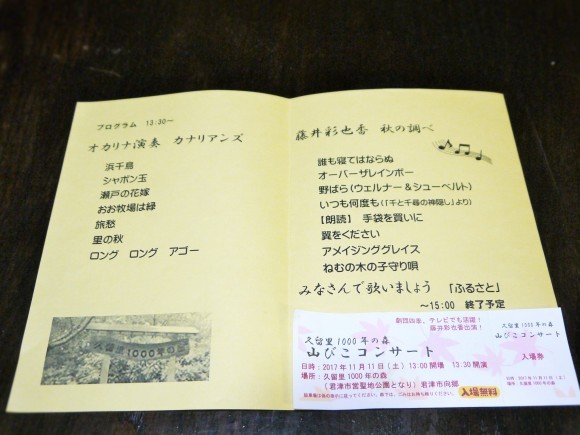 プログラム 13:30～
オカリナ演奏 カナリアンズ
浜千鳥
シャボン玉
瀬戸の花嫁
おお牧場は緑
旅愁
里の秋
ロング ロング アゴー
1000年の森
藤井彩也香 秋の調べ
誰も寝てはならぬ
オーバーザレインボー
野ばら(ウェルナー&シューベルト)
いつも何度も(「千と千尋の神隠し」より)
【朗読】 手袋を買いに
翼をください
アメイジンググレイス
ねむの木の子守り唄
みなさんで歌いましょう 「ふるさと」
～15:00 終了予定
劇団四季、テレビでも活躍!
藤井彩也香出演!
久留里1000年の森
山びこコンサート
日時:2017年11月11日(土) 13:00開場 13:30開演
場所:久留里1000年の森
(君津市営聖地公園となり) 君津市向郷
入場無料
久留里1000年の森
山びこコンサート
入場券
日時:2017年11月11日(土)
場所:久留里1000年の森